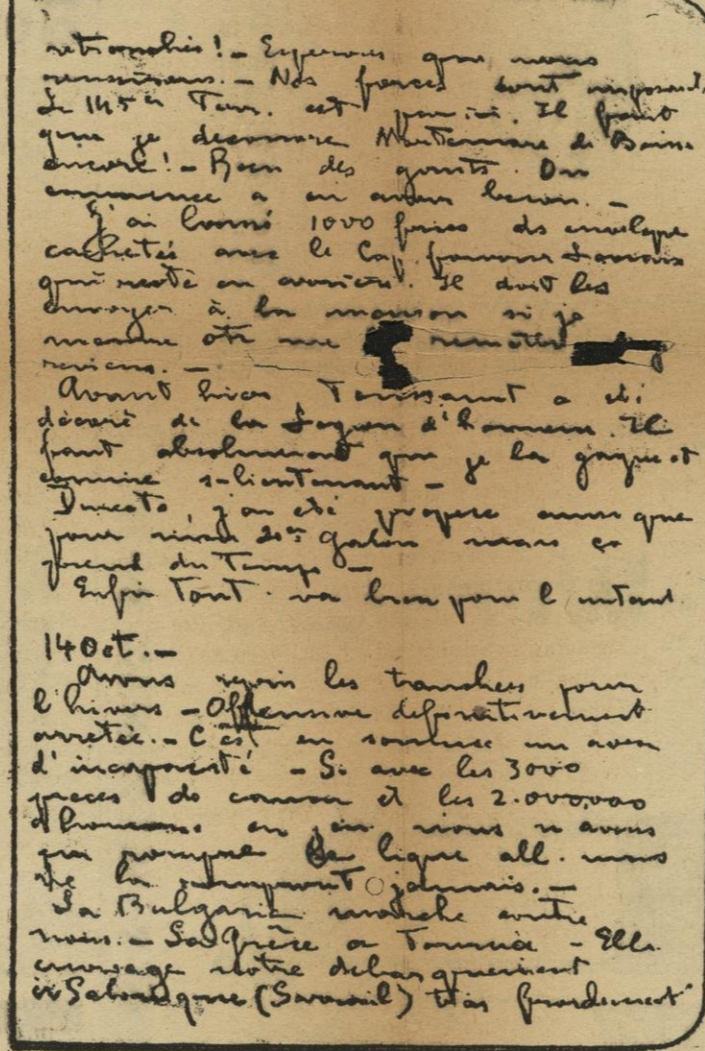 retranchés! - Esperons que nous
reussirons. - Nos forces sont imposant
Le 145e Terr. est par ici. Il faut
que je decouvre Mortemare de Boisse
encore! - Rien des gouts. On
commence a en avoir besoin. -
J'ai laissé 1000 francs ds enveloppe
cachetée avec le Cap.
qui reste en arrière. Il doit les
envoyer à la maison si je
ne remettre
reviens. -
Avant hier, Toussaint a été
décoré de la Legion d'honneur. Il
faut absolument que je la gagne et
comme s-lieutenant -
Du reste, j'ai été proposé ainsi que
pour mon 2me galon mais ça
prend du Temps -
Enfin Tout va bien pour l'instant.
14 Oct. -
Avons repris les tranchees pour
l'hivers - Offensive definitivement
arretée. - C'est en somme un aveu
d'incapacité - Si avec les 3000
pieces de canon et les 2.000.000
d'hommes en jeu nous n'avons
pu rompre la ligne all. nous
ne la rompront jamais. -
La Bulgarie marche contre
nous. - La Grèce a Tournée - Elle
envisage notre debarquement
à Salonique (Sarrail) très froidement